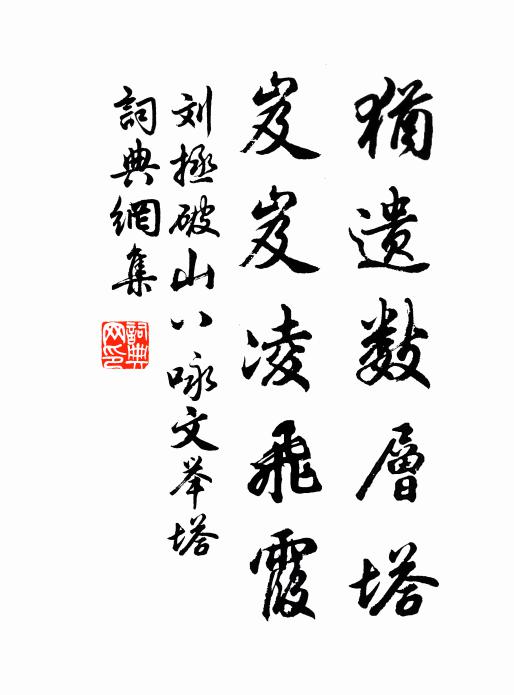 猶遗数層塔
岌岌凌飛霞
刘拯破山八咏文举塔
詞典網集
詞典網印